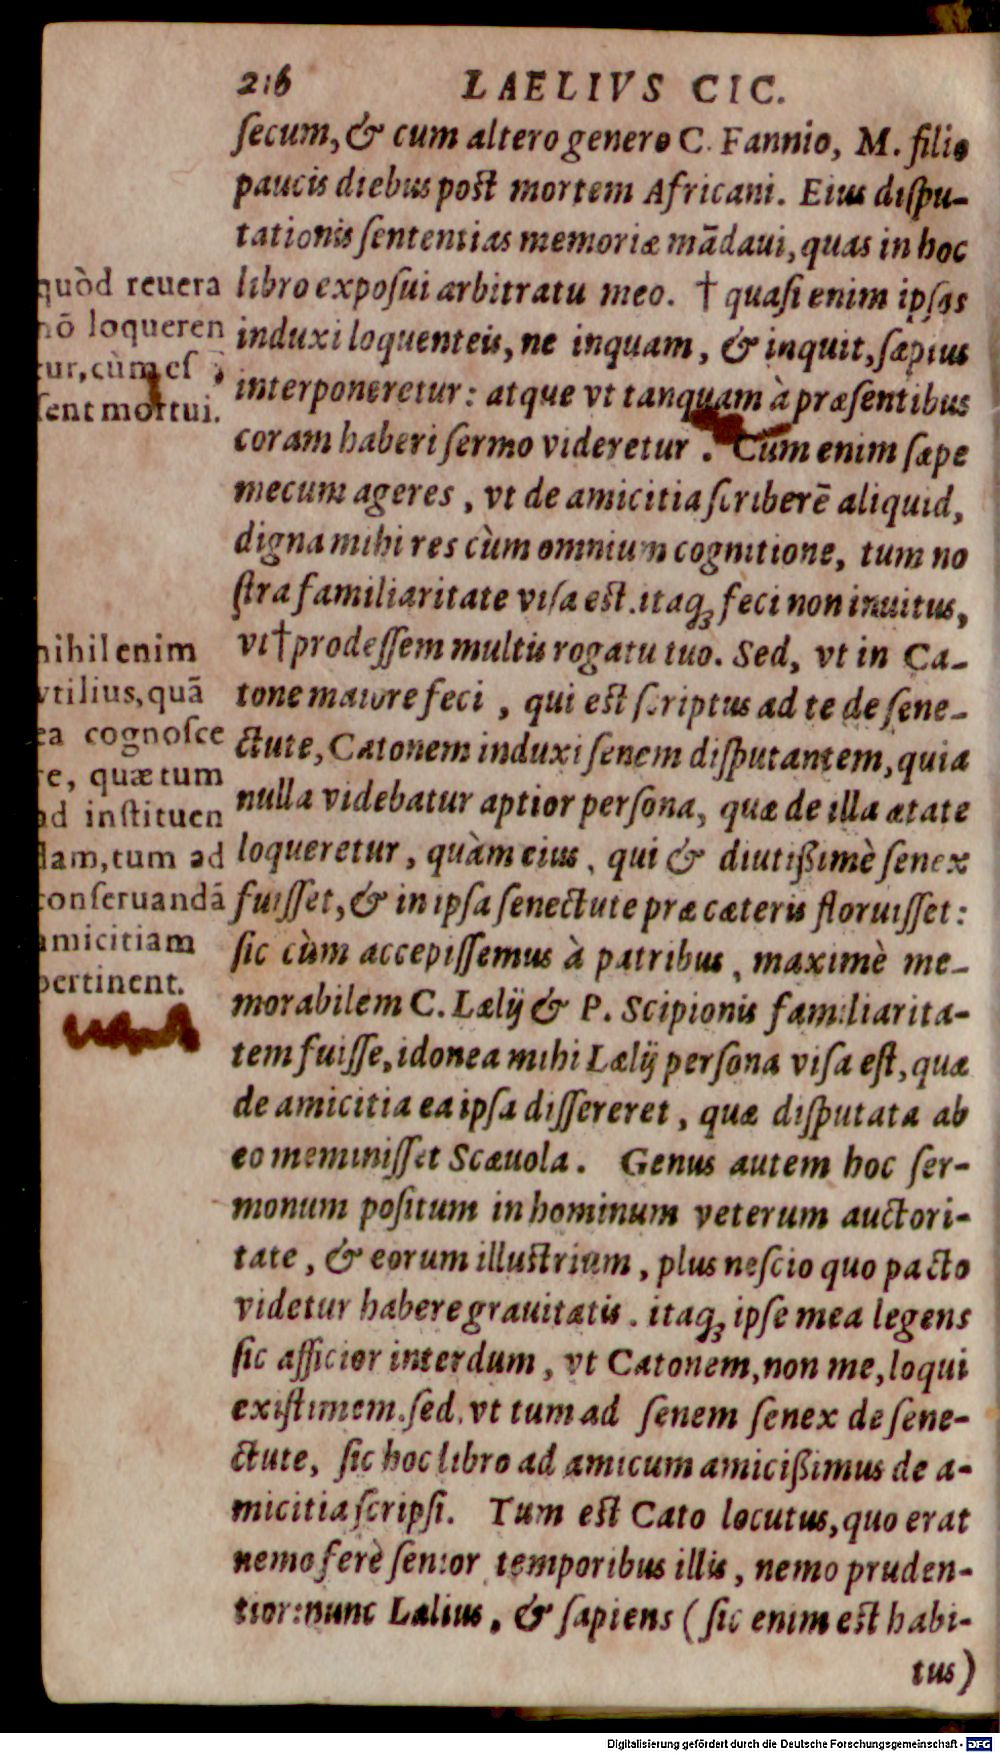 216 LAELIVS CIC.
ſecum, & cum altero genero C. Fannio, M. filio
paucis diebus post mortem Africani. Eius diſpu-
tationis ſententias memoriæ mādaui, quas in hoc
libro expoſui arbitratu meo. † quaſi enim ipſos
induxi loquenteis, ne inquam, & inquit, ſæpius
interponeretur: atque vt tanquam à præſentibus
coram haberi ſermo videretur. Cùm enim ſæpe
mecum ageres, vt de amicitia ſcriberē aliquid,
digna mihi res cùm omnium cognitione, tum no
ſtra familiaritate viſa est. itaq; feci non inuitus,
vt † prodeſſem multis rogatu tuo. Sed, vt in Ca-
tone maiore feci, qui est ſcriptus ad te de ſene-
ctute, Catonem induxi ſenem diſputantem, quia
nulla videbatur aptior perſona, quæ de illa ætate
loqueretur, quàm eius, qui & diutißimè ſenex
fuiſſet, & in ipſa ſenectute præ cæteris floruiſſet:
ſic cùm accepiſſemus à patribus, maximè me-
morabilem C. Lælij & P. Scipionis familiarita-
tem fuiſſe, idonea mihi Lælij perſona viſa eſt, quæ
de amicitia ea ipſa diſſereret, quæ diſputata ab
eo meminiſſet Scæuola. Genus autem hoc ſer-
monum poſitum in hominum veterum auctori-
tate, & eorum illustrium, plus neſcio quo pacto
videtur habere grauitatis. itaq; ipſe mea legens
ſic afficior interdum, vt Catonem, non me, loqui
exiſtimem. ſed, vt tum ad ſenem ſenex de ſene-
ctute, ſic hoc libro ad amicum amicißimus de a-
micitia ſcripſi. Tum est Cato locutus, quo erat
nemo ferè ſenior temporibus illis, nemo pruden-
tior: nunc Lælius, & ſapiens (ſic enim est habi-
tus)
quòd reuera
nō loqueren
tur, cùm eſ
ſent mortui.
nihil enim
vtilius, quā
ea cognoſce
re, quæ tum
ad inſtituen
dam, tum ad
conſeruandā
amicitiam
pertinent.
Digitalisierung gefördert durch die Deutsche Forschungsgemeinschaft - DFG